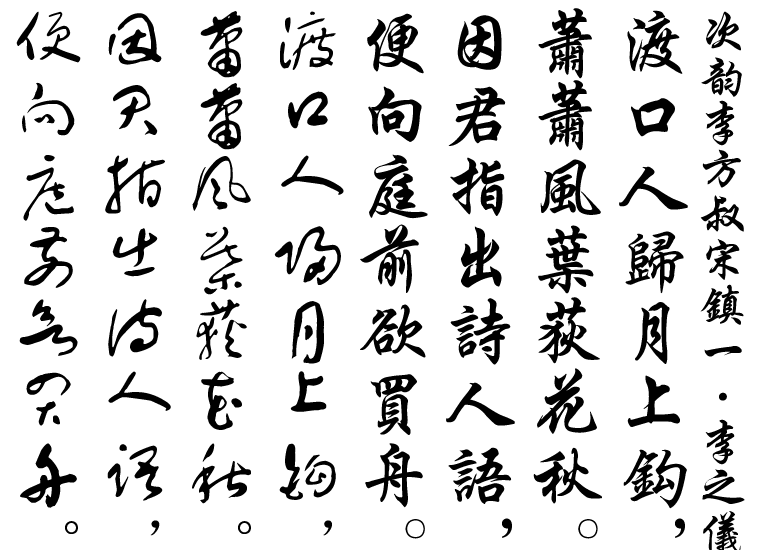 次韵李方叔宋鎮一·李之儀
渡口人歸月上鈎，
蕭蕭風葉荻花秋。
因君指出詩人語，
便向庭前欲買舟。
渡口人歸月上鈎，
蕭蕭風葉荻花秋。
因君指出詩人語，
便向庭前欲買舟。